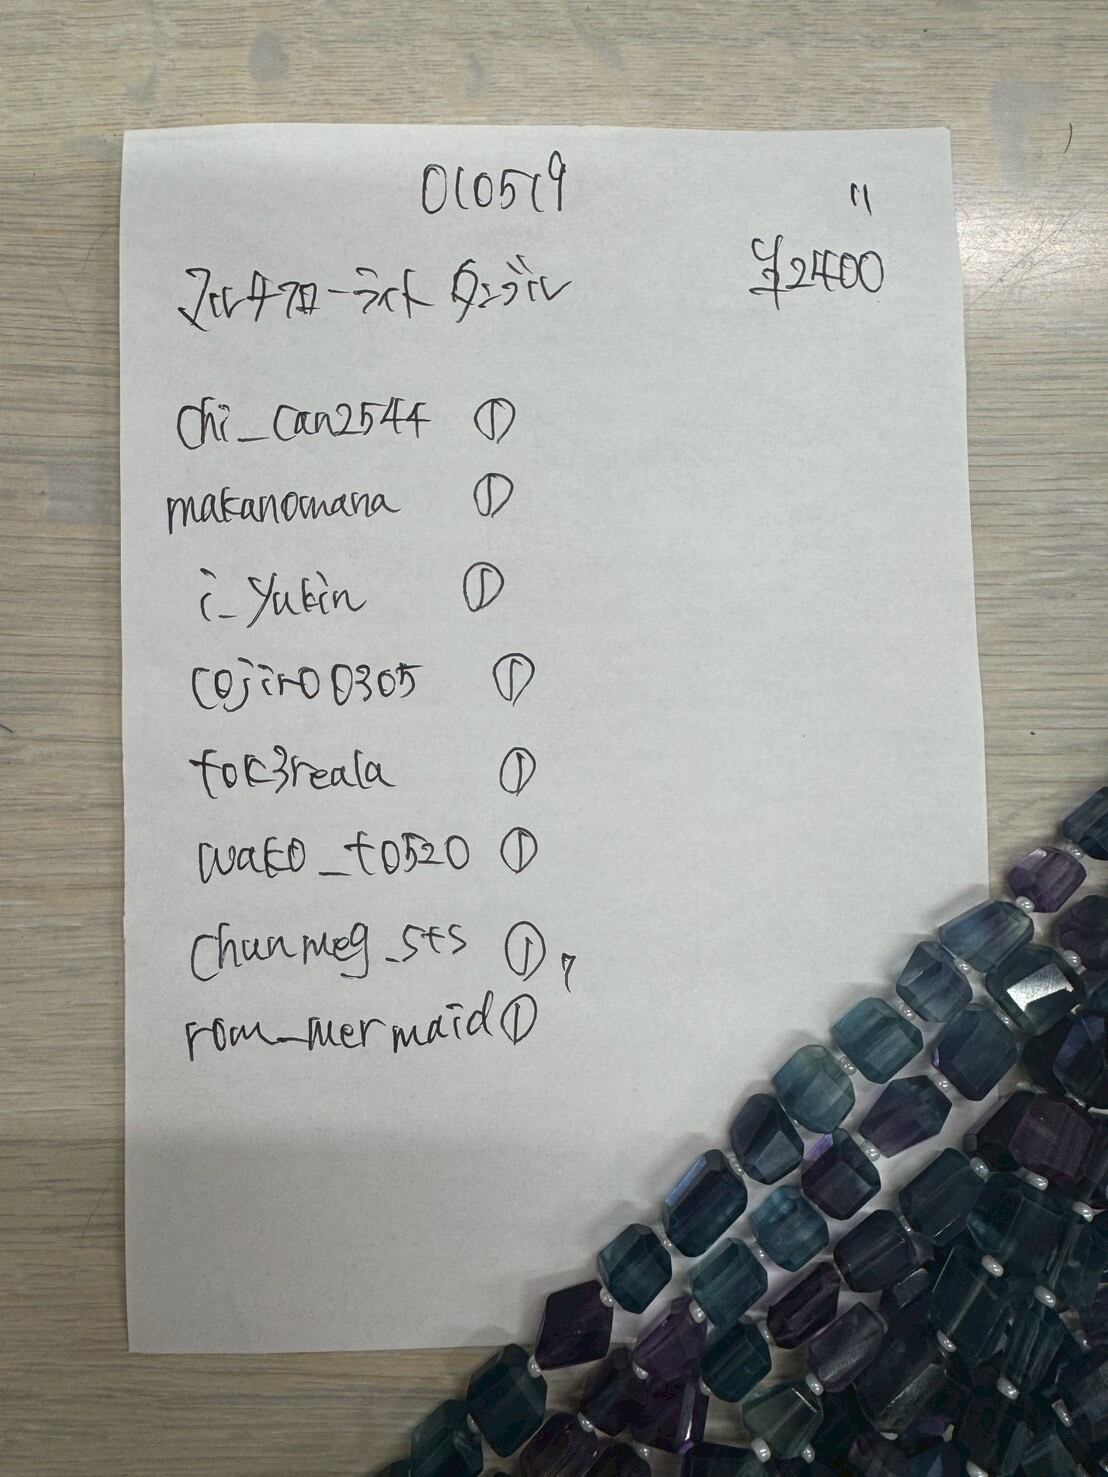 010519
11
マルチフローライト タンブル
¥2400
chi_can2544 ①
makanomana ①
i_yukin ①
cojiro0305 ①
tok3reala ①
wako_to520 ①
chunmeg_sts ①
rom_mermaid ①